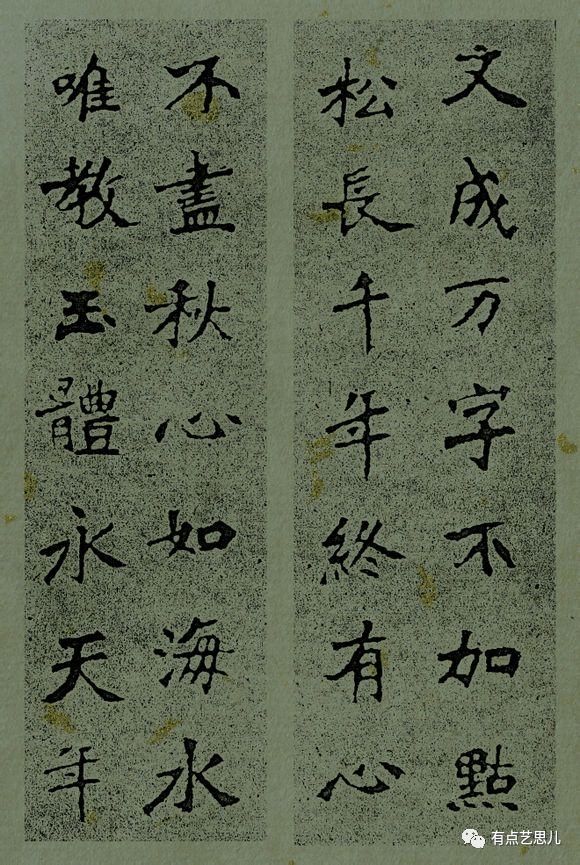 文成万字不加點
松長千年終有心
不盡秋心如海水
唯教玉體永天年
有点艺思儿